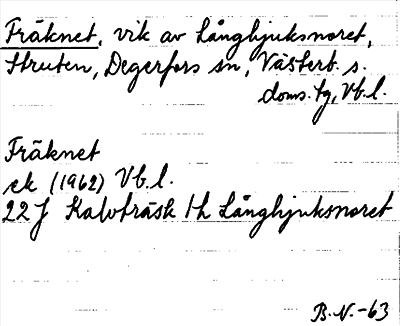 Fräknet, vik av Långhjuksnoret,
Struten, Degerfors sn, Västerb. s.
doms. tg, Vb. l.
Fräknet
ek (1962) Vb. l.
22 J Kalvträsk 1 h Långhjuksnoret
B.N.-63